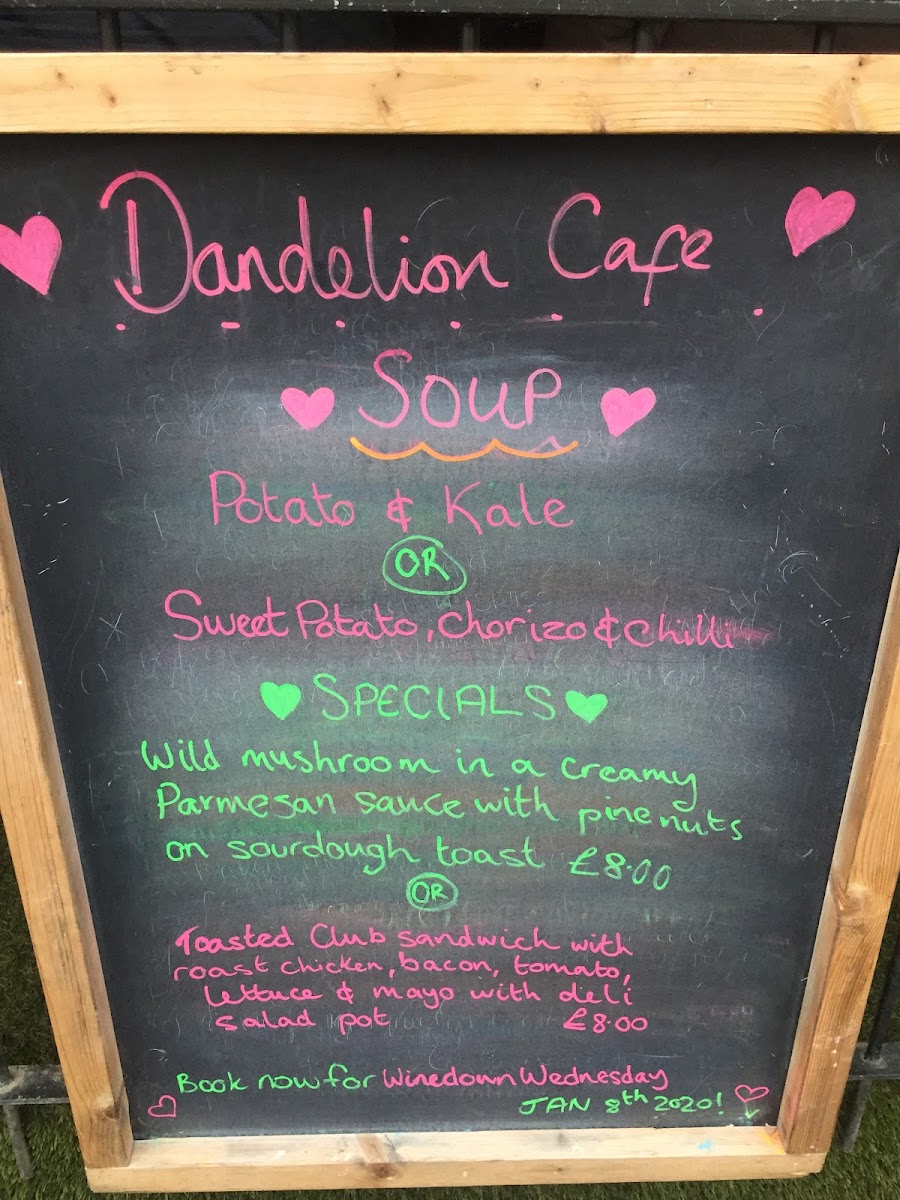 Dandelion Cafe
SOUP
Potato & Kale
OR
Sweet Potato, Chorizo & Chilli
SPECIALS
Wild mushroom in a creamy
Parmesan sauce with pine nuts
on sourdough toast £8.00
OR
Toasted Club sandwich with
roast chicken, bacon, tomato,
lettuce & mayo with deli
salad pot £8.00
Book now for Winedown Wednesday
JAN 8th 2020!